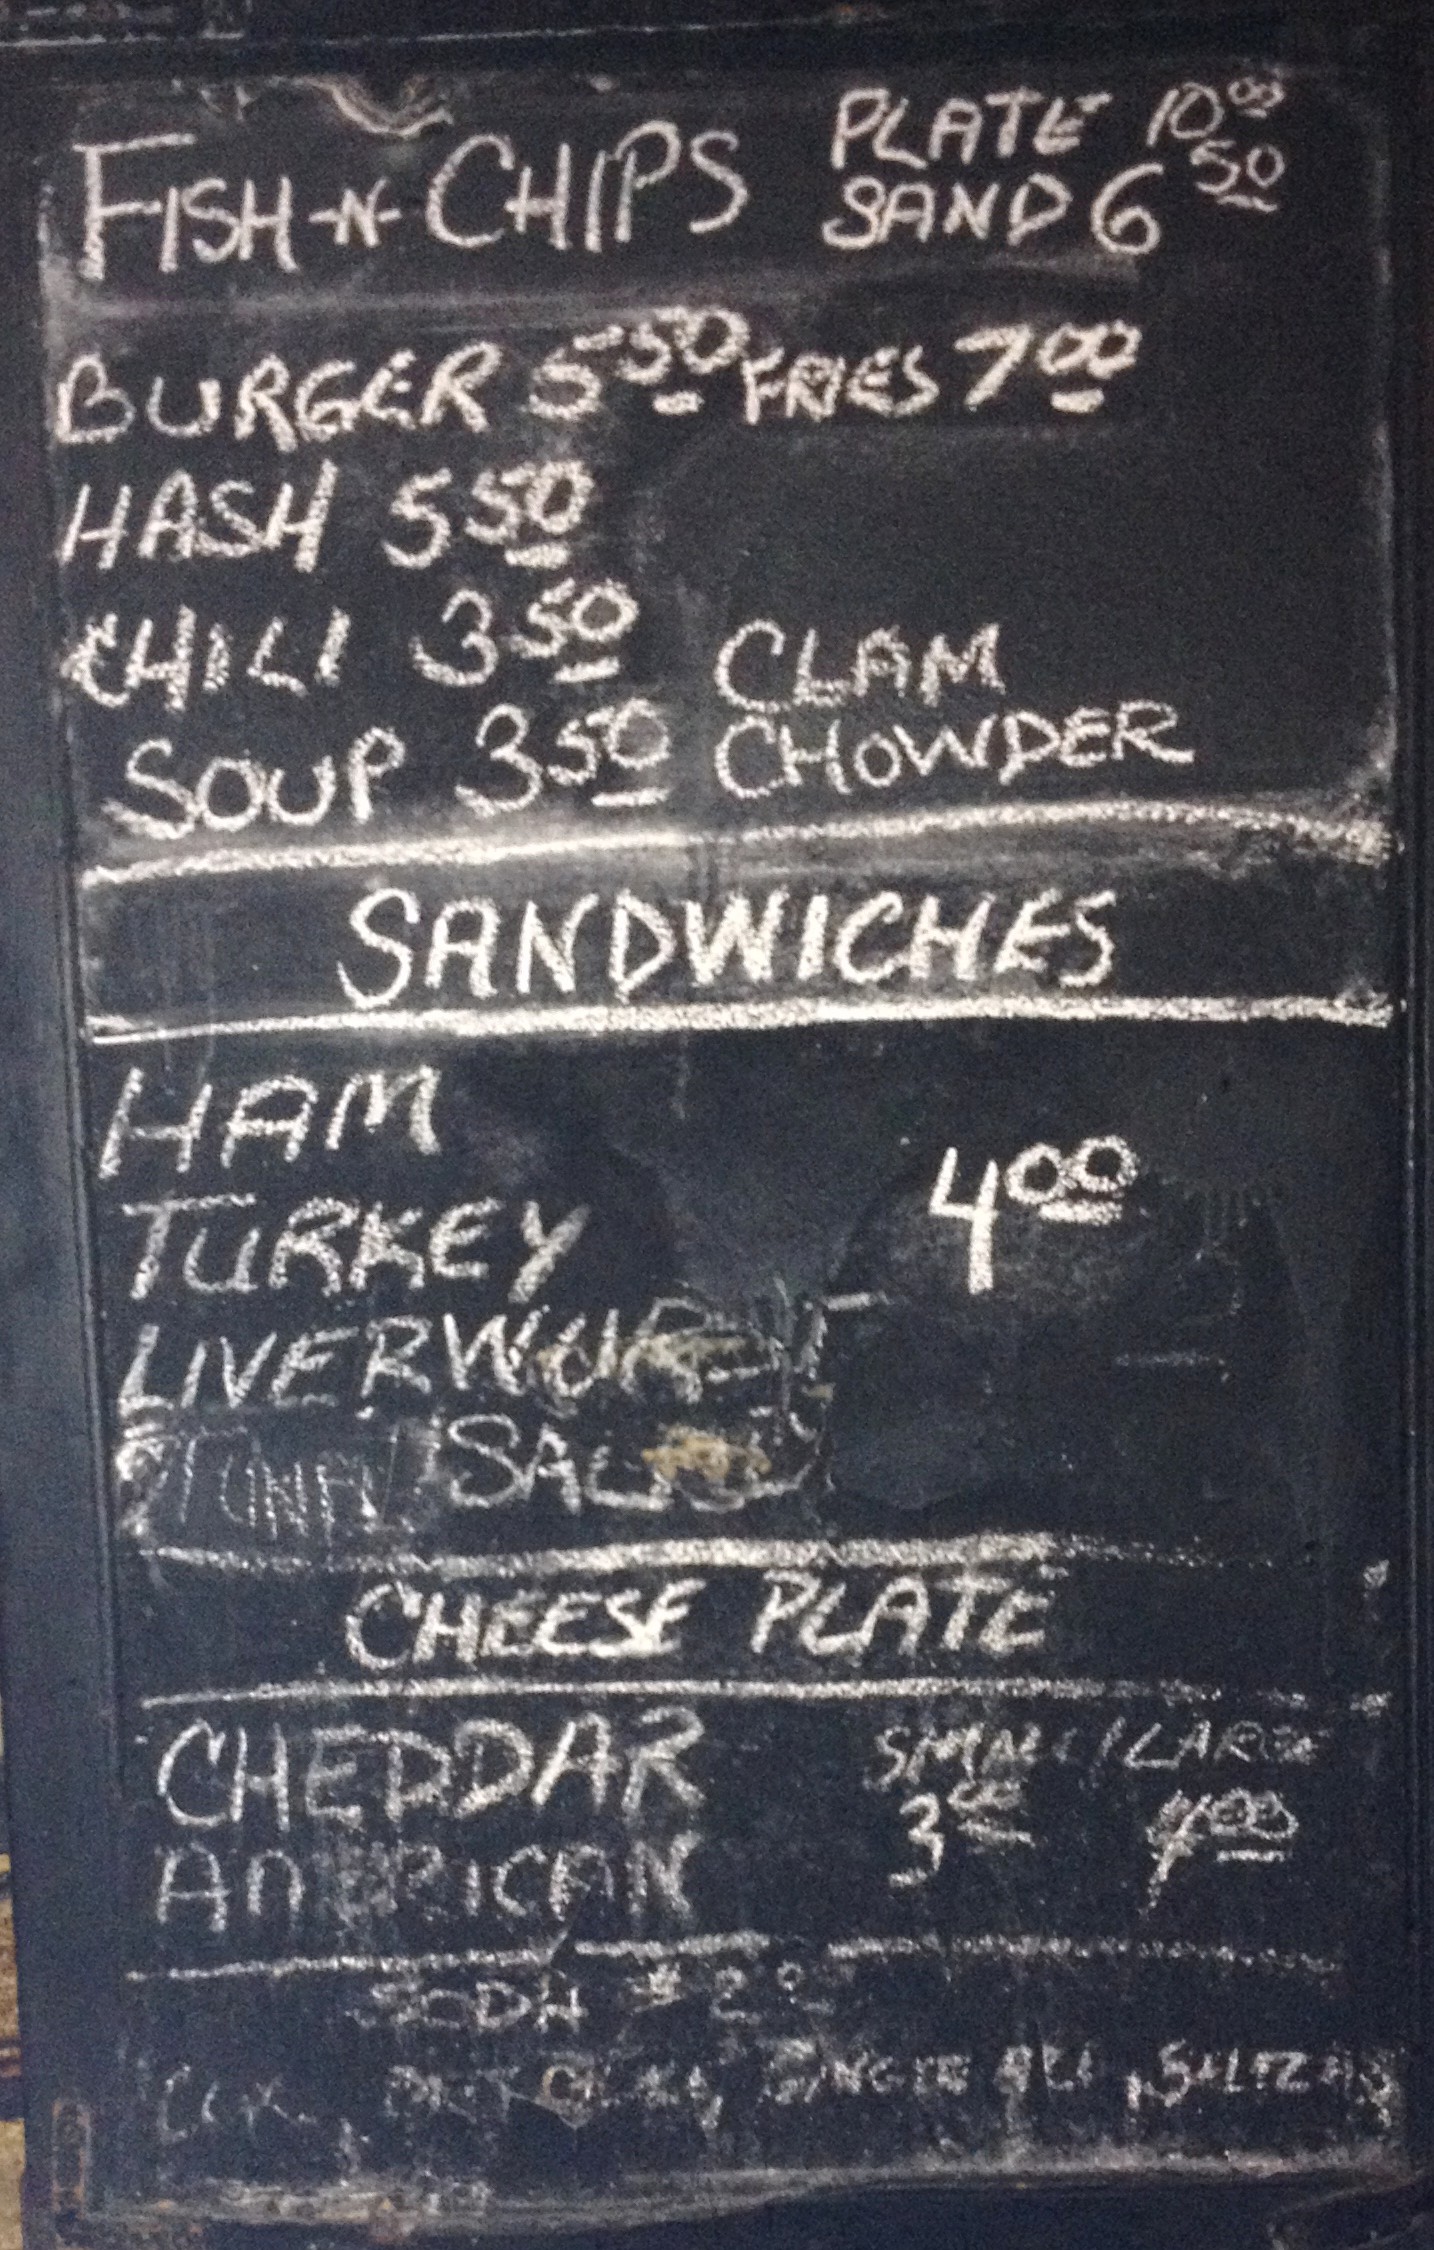 FISH-N-CHIPS PLATE 10 00
SAND 6 50
BURGER 5 50 FRIES 7 00
HASH 5 50
CHILI 3 50 CLAM
SOUP 3 50 CHOWDER
SANDWICHES
HAM
TURKEY 4 00
LIVERWURST
TUNA SALAD
CHEESE PLATE
CHEDDAR SMALL/LARGE
AMERICAN 3 00 4 00
SODA $2 00
DIET COKE, GINGER ALE, SELTZER